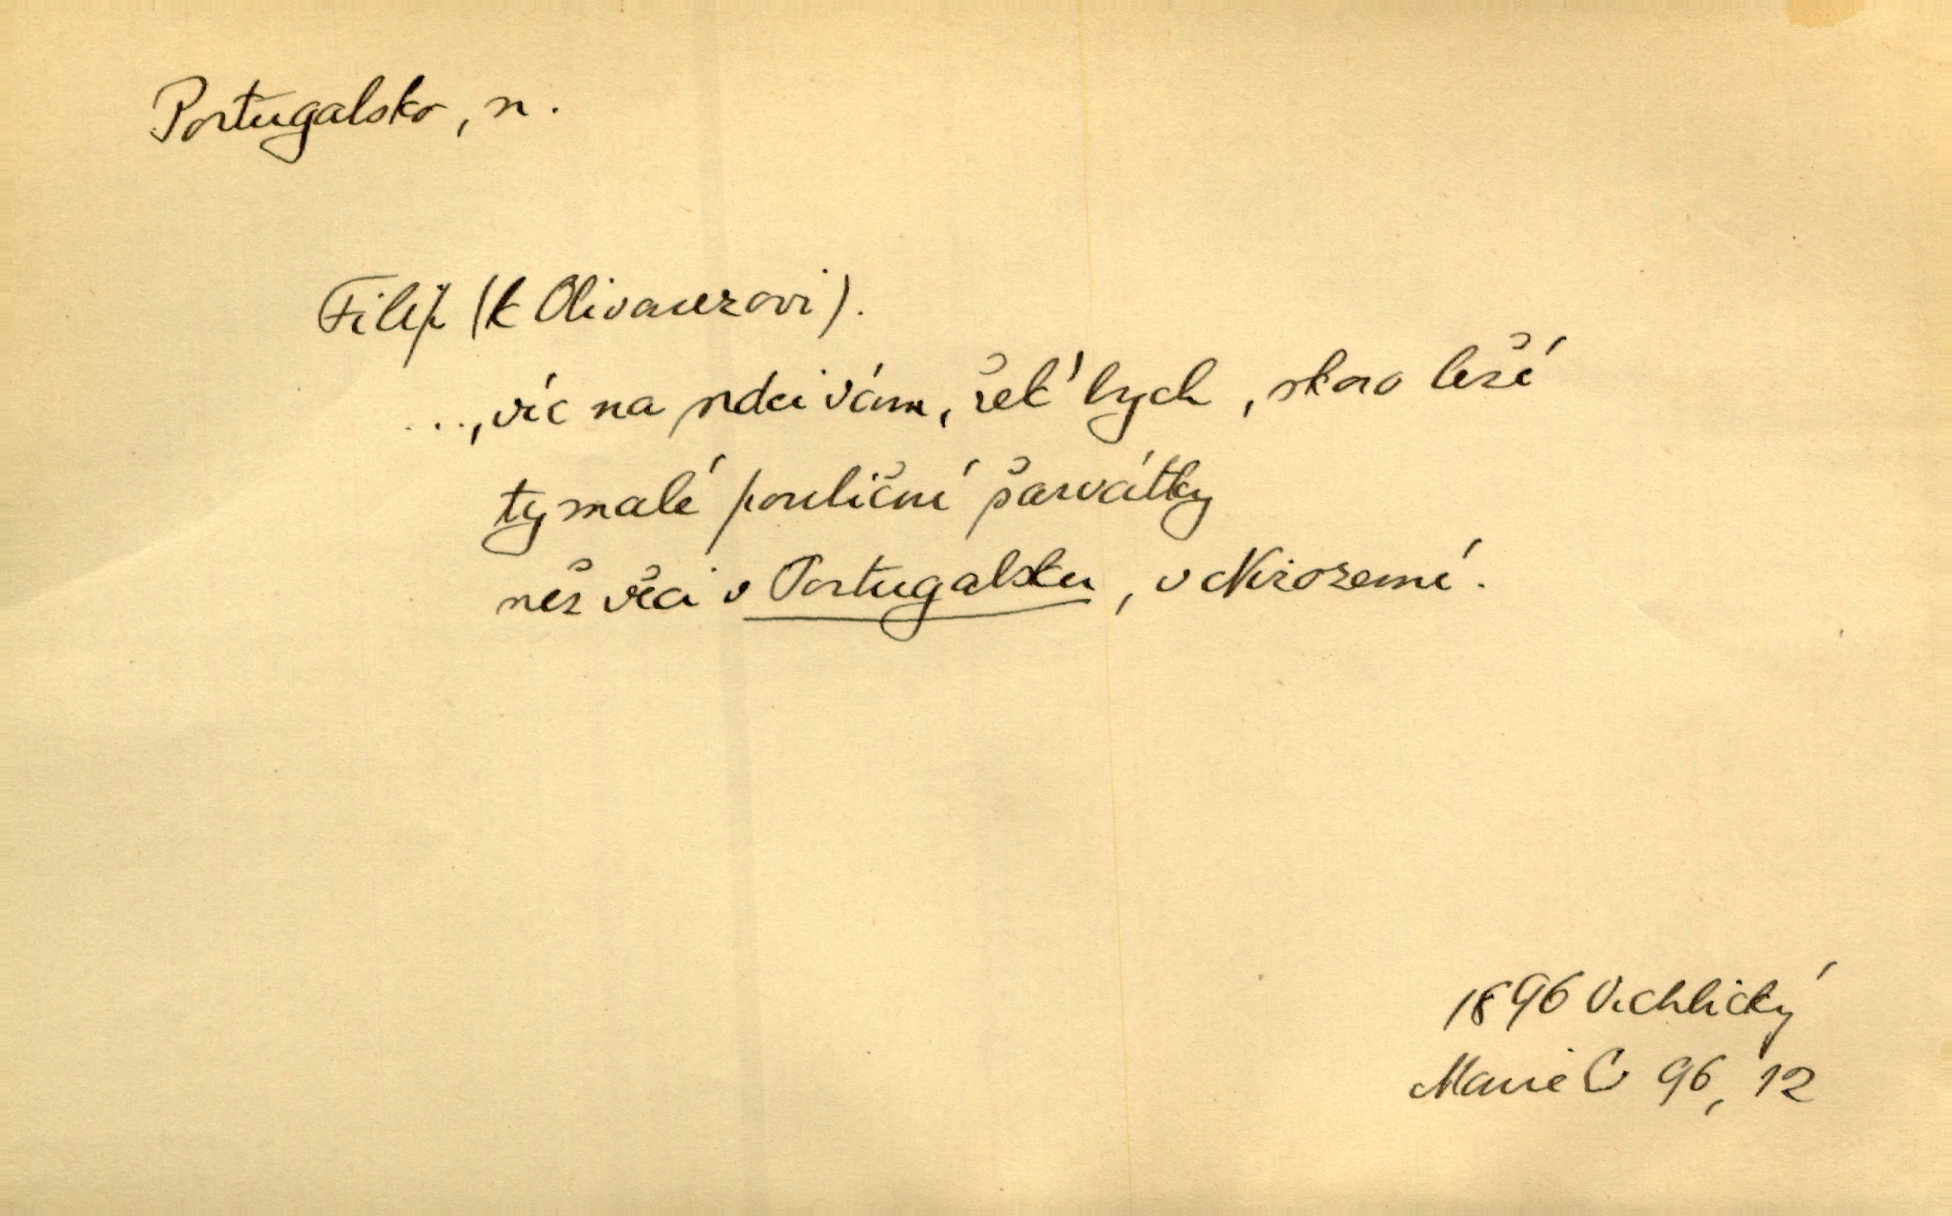 Portugalsko, n.
Filip (k Olivarezovi).
..., víc na srdci vám, řek' bych, skoro leží
ty malé pouliční šarvátky
než věci v Portugalsku, v Nizozemí.
1896 Vrchlický
Marie C 96, 12